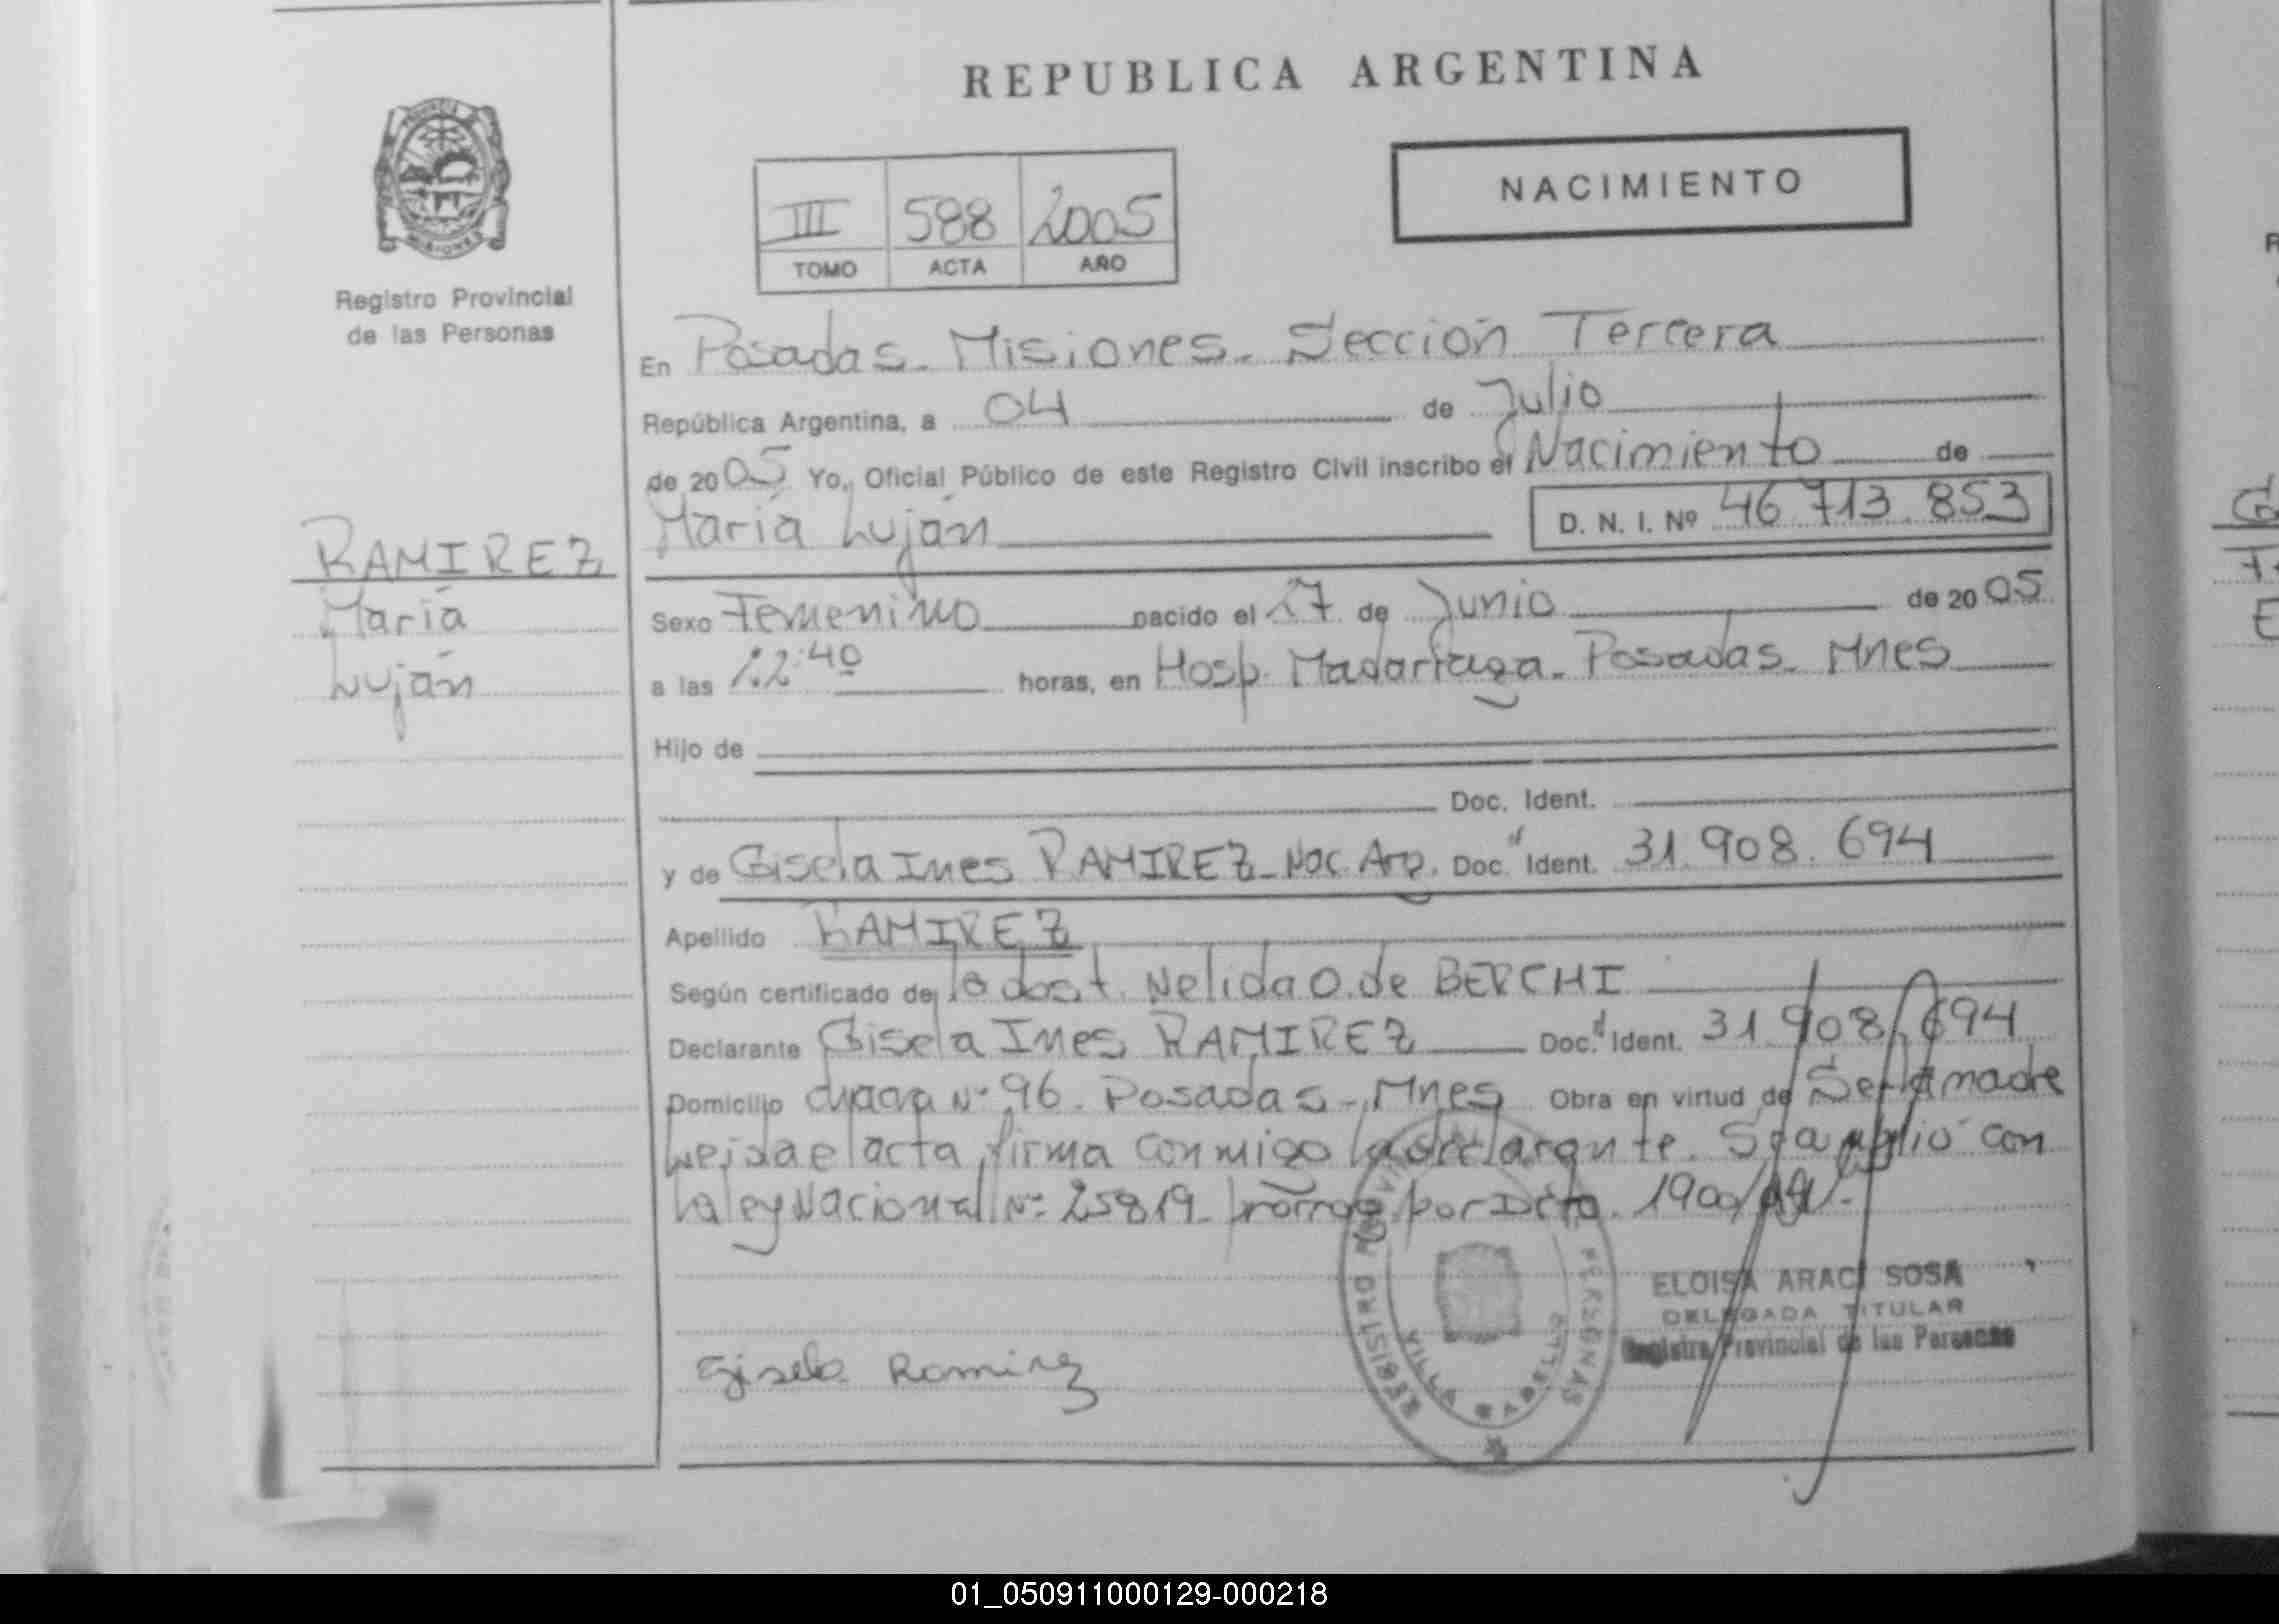 REPUBLICA ARGENTINA
PROVINCIA
MISIONES
Registro Provincial
de las Personas
III 588 2005
TOMO ACTA AÑO
NACIMIENTO
En Posadas - Misiones - Sección Tercera
República Argentina, a 04 de Julio
de 2005 Yo, Oficial Público de este Registro Civil inscribo el Nacimiento de
María Luján D. N. I. Nº 46.713.853
RAMIREZ
María
Luján
Sexo Femenino nacido el 17 de Junio de 2005
a las 12:40 horas, en Hosp. Madariaga - Posadas - Mnes
Hijo de
Doc. Ident.
y de Gisela Ines RAMIREZ - Nac. Arg. Doc. Ident. 31.908.694
Apellido RAMIREZ
Según certificado de la obst. Nelida O. de BERCHI
Declarante Gisela Ines RAMIREZ Doc. Ident. 31.908.694
Domicilio chacra Nº 96 - Posadas - Mnes Obra en virtud de Ser la madre
Leida el acta firma conmigo la declarante. Se amplió con
la ley Nacional Nº 25819 - prorrog. por Dcto.
ELOISA ARACI SOSA
DELEGADA TITULAR
Registro Provincial de las Personas
Gisela Ramirez
REGISTRO PROVINCIAL PERSONAS
VILLA CABELLO
01_050911000129-000218